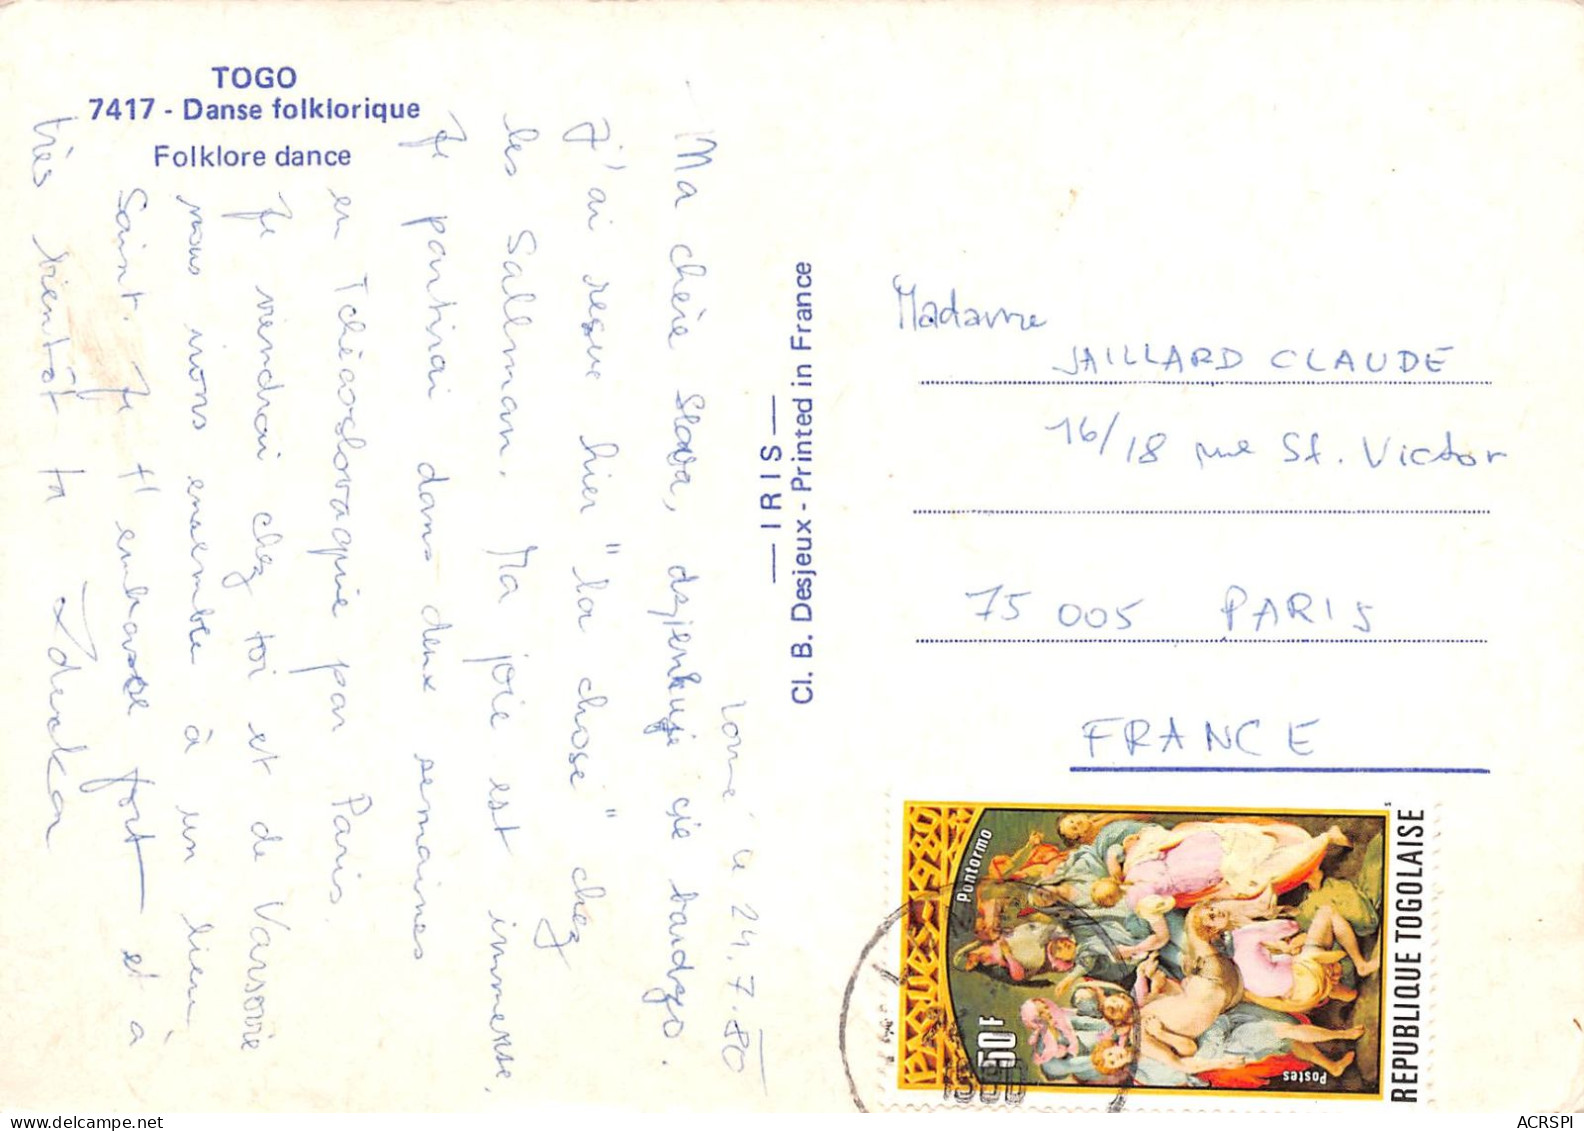 TOGO
7417 - Danse folklorique
Folklore dance
Lomé le 24.7.80
Ma chère Slava, dzjenkuje cie bardzo.
J'ai reçue hier "la chose" chez
les Sallman. Ma joie est immense.
Je partirai dans deux semaines
en Tchéooslovaquie par Paris.
Je viendrai chez toi et de Varsovie
nous irons ensemble à un lieu
Saint. Je t'embrasse fort et à
très bientôt ta Zdenka
— IRIS —
Cl. B. Desjeux - Printed in France
Madame
JAILLARD CLAUDE
16/18 rue St. Victor
75005 PARIS
FRANCE
PAQUES-1980
Pontormo
50F
Postes
REPUBLIQUE TOGOLAISE
ACRSPI